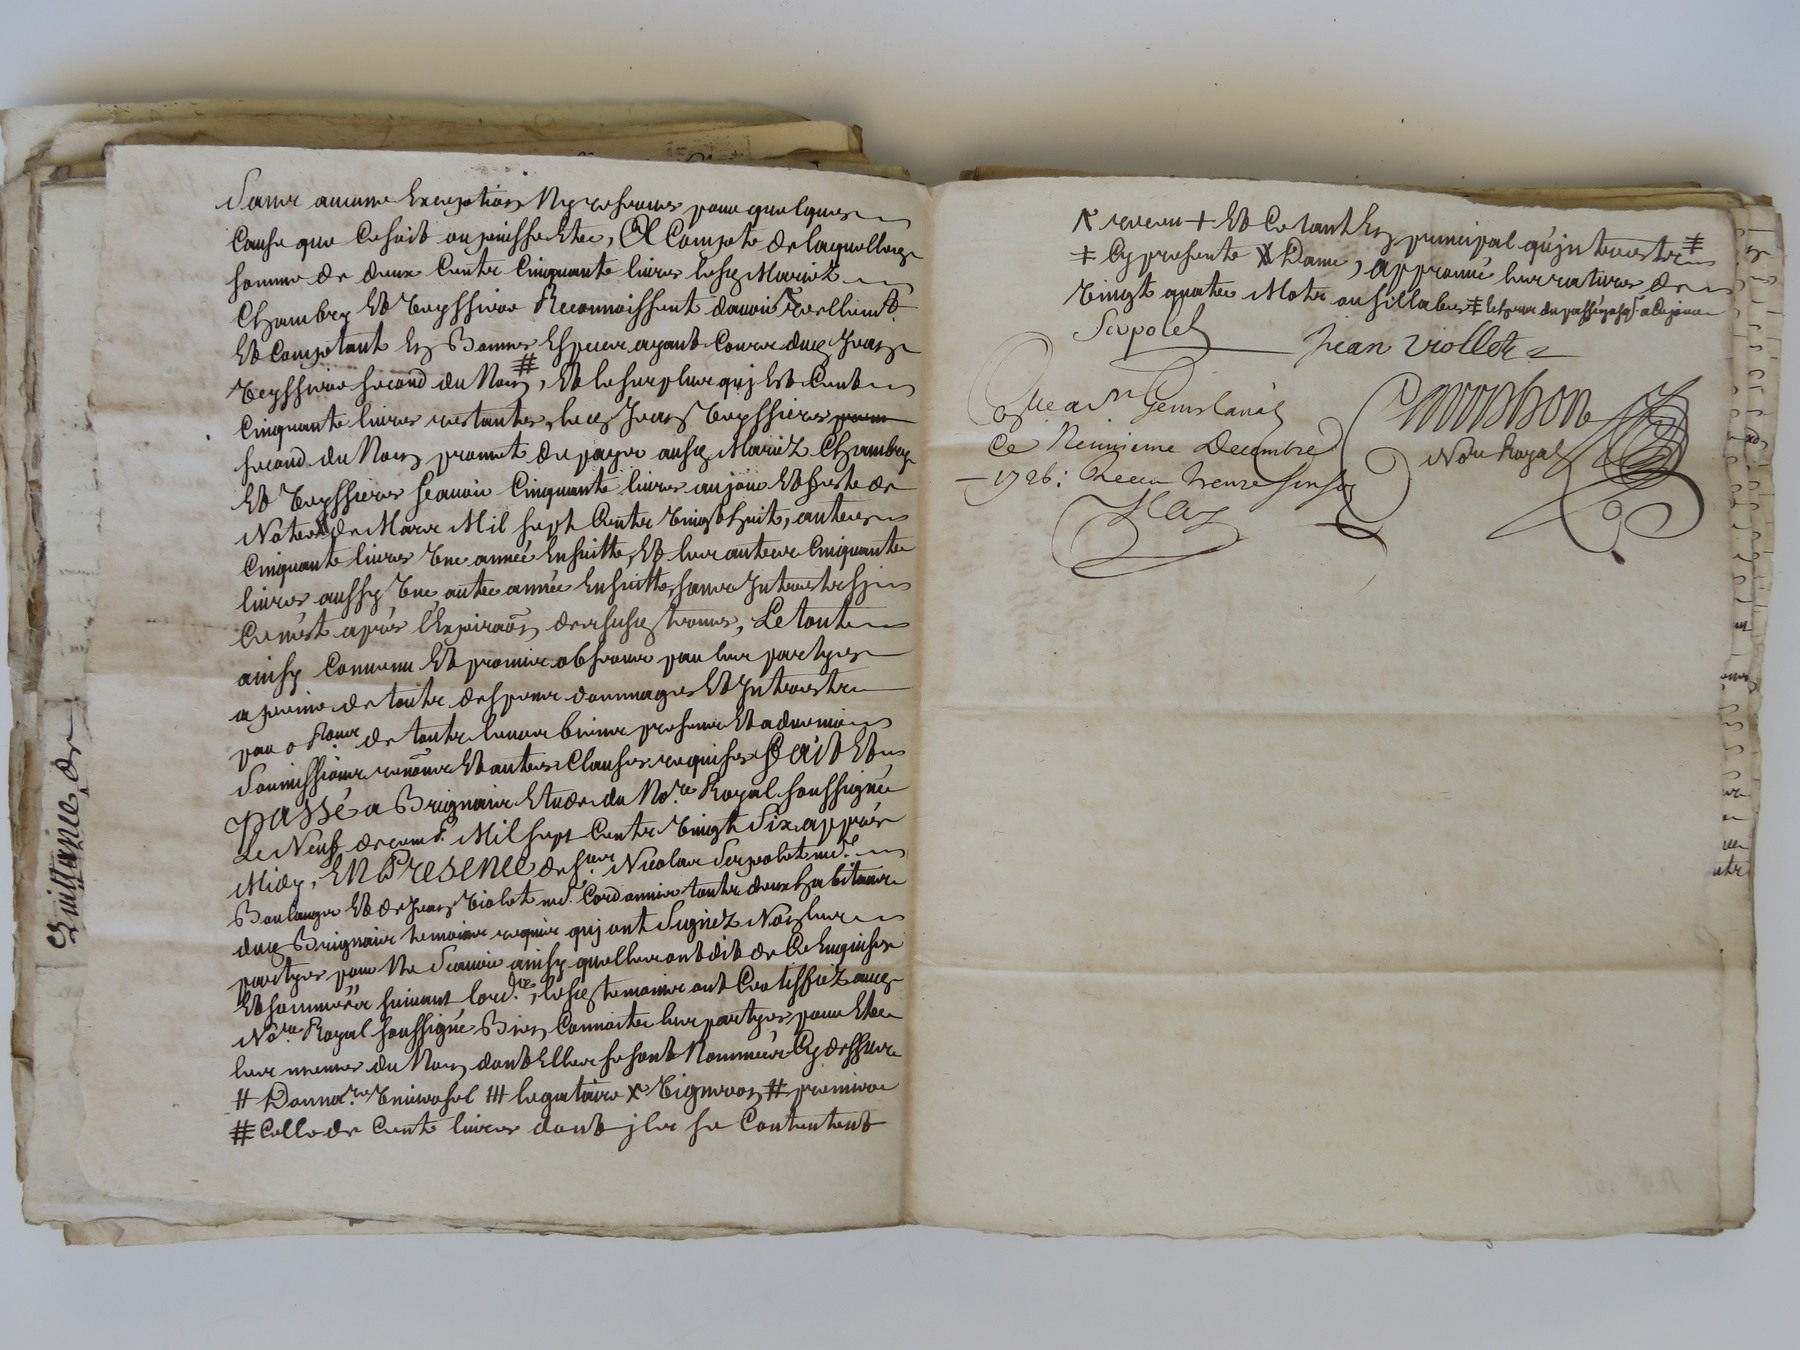 Sans aucune Exception Ny reserves pour quelques
Cause que Ce soit ou puisse Etre, A Compte de laquelle
somme de deux Cents Cinquante livres lesd. Mariez
Chambry Et Teyssiere Reconnoissent d'avoir reellemt.
Et Comptant En Bonnes Especes ayant Cours dud. Jean
Teyssiere second du Nom #, Et le surplus quj Est Cent
Cinquante livres restantes, led. Jean Teyssiere
second du Nom promet de payer ausd. Mariez Chambry
Et Teyssiere scavoir Cinquante livres au jour Et feste de
Notre X de Mars Mil sept Cents Vingt huit, autres
Cinquante livres Une année Ensuitte, Et les autres Cinquante
livres aussy Une autre année Ensuitte sans Interests sj
Ce n'est après l'Expiraõn desd. termes, Le tout
ainsy Convenu Et promis observer par les partyes
a peine de touts despens dommages Et Interests
par de touts leurs biens presents Et advenir
Soumissions renõns Et autres Clauses requises Fait Et
passé a Brignais Etude du Nore. Royal soussigné
Le Neuf decemb. Mil sept Cents Vingt Six après
Midy, En Presence de sieur. Nicolas Serpolet md.
Boulanger Et de Jean Violet md. Cordonnier touts deux habitants
dud. Brignais temoins requis quj ont Signez Non les
partyes pour Ne Scavoir ainsy qu'elles ont dit de Ce Enquises
Et sommées suivant l'ord.re, lesd. temoins ont Certiffiez aud.
Nore. Royal soussigné Bien Connoitre les partyes pour Etre
les memes du Nom dont Elles se sont Nommées Cy dessus
# Donnat.re Universel ## legataire x Vigneron # premiere
# Celle de Cents livres dont jls se Contentent
Quittance de
x receu + Et Cetant En principal qu'jnterests #
+ Cy presente X Dame, approuvé les ratures de
Vingt quatre Mots ou sillabes #
Serpolet
Jean Viollet
Nore Royal
Ce Neuvieme Decembre
1726: Receu treze sols